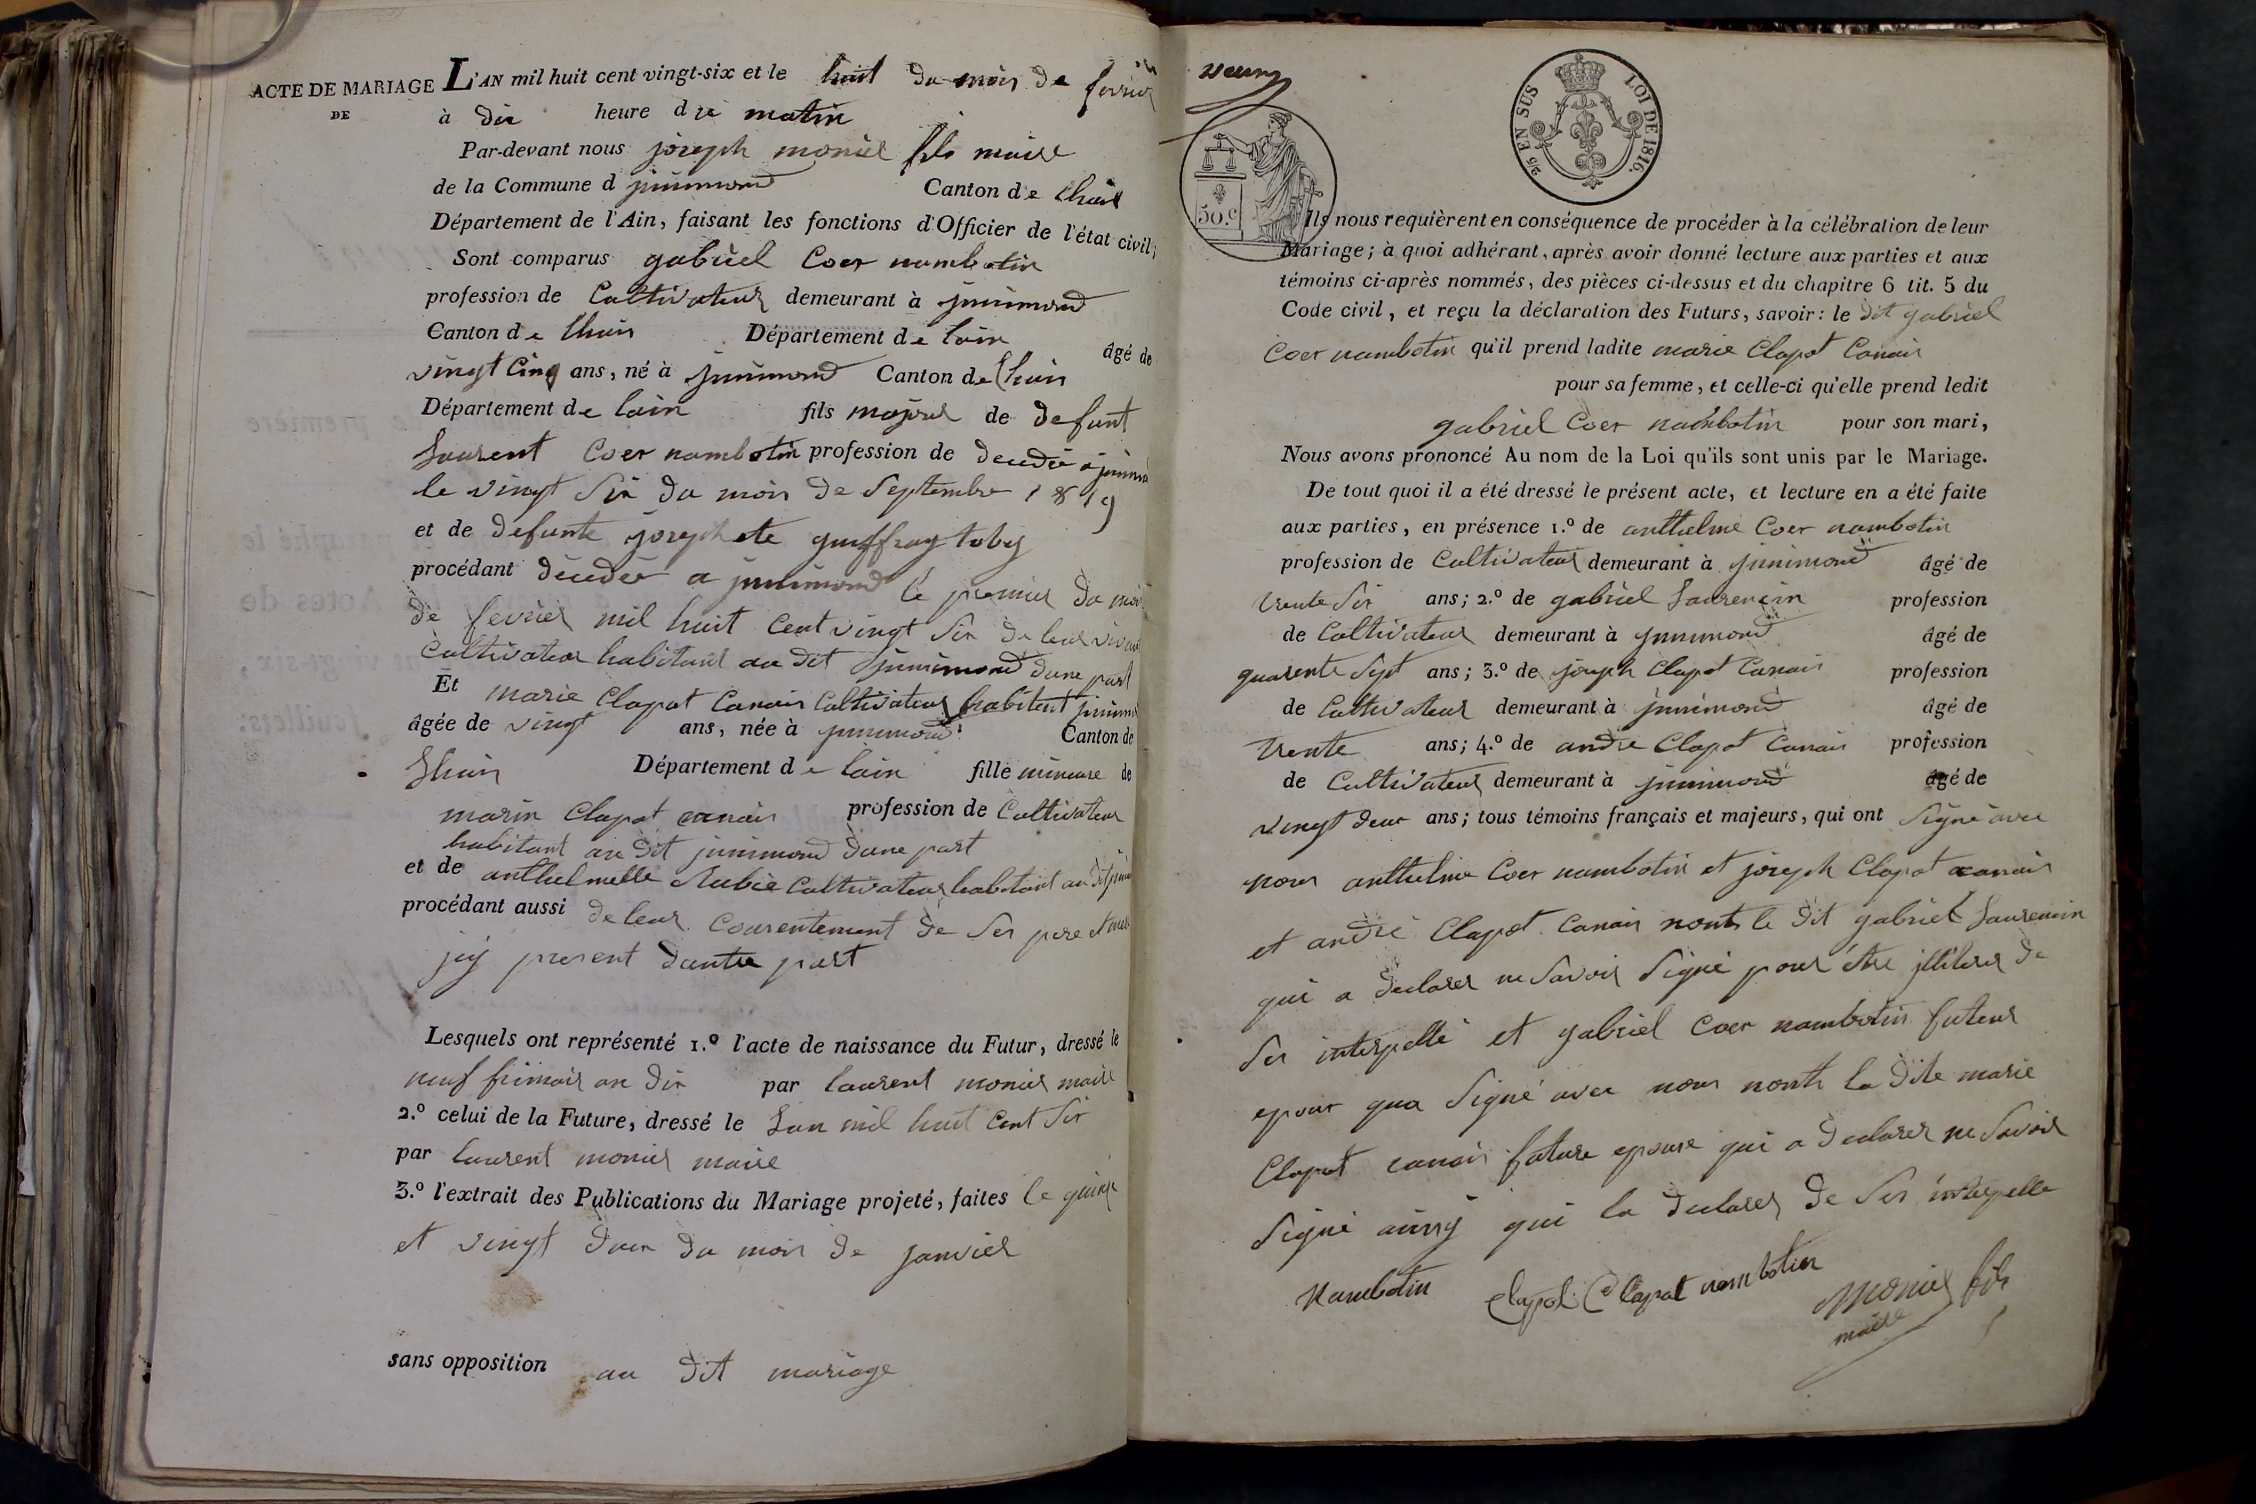 ACTE DE MARIAGE
DE
L'AN mil huit cent vingt-six et le huit du mois de fevrier
à dix heure du matin
Par-devant nous joseph monier fils maire
de la Commune d junimond Canton de lhuis
Département de l'Ain, faisant les fonctions d'Officier de l'état civil;
Sont comparus gabriel Coer nambotin
profession de Cultivateur demeurant à junimond
Canton de lhuis Département de lain âgé de
vingt Cinq ans, né à junimond Canton de lhuis
Département de lain fils majeur de defunt
laurent Coer nambotin profession de decedé a junimond
le vingt Six du mois de Septembre 1819
et de defunte josephete guiffray toby
procédant décédée a junimond le premier du mois
de fevrier mil huit Cent vingt Six de leur vivant
Cultivateur habitant au dit junimond dune part
Et marie Clapot Canair Cultivateur habitent junimond
âgée de vingt ans, née à junimond Canton de
lhuis Département de lain fille mineure de
marin Clapot canair profession de Cultivateur
habitant au dit junimond dune part
et de anthelmelle Rubie Cultivateur habitant au dit
procédant aussi de leur Consentement de Ses pere et mere
jcy present dautre part
Lesquels ont représenté 1.º l'acte de naissance du Futur, dressé le
neuf frimair an dix par laurent monier maire
2.º celui de la Future, dressé le Lan mil huit Cent Six
par laurent monier maire
3.º l'extrait des Publications du Mariage projeté, faites le quinze
et vingt deux du mois de janvier
sans opposition au dit mariage
2/5 EN SUS
LOI DE 1816.
50.c
Ils nous requièrent en conséquence de procéder à la célébration de leur
Mariage; à quoi adhérant, après avoir donné lecture aux parties et aux
témoins ci-après nommés, des pièces ci-dessus et du chapitre 6 tit. 5 du
Code civil, et reçu la déclaration des Futurs, savoir: le dit gabriel
Coer nambotin qu'il prend ladite marie Clapot Canair
pour sa femme, et celle-ci qu'elle prend ledit
gabriel Coer nambotin pour son mari,
Nous avons prononcé Au nom de la Loi qu'ils sont unis par le Mariage.
De tout quoi il a été dressé le présent acte, et lecture en a été faite
aux parties, en présence 1.º de anthelme Coer nambotin
profession de Cultivateur demeurant à junimond âgé de
trente Six ans; 2.º de gabriel Laurencin profession
de Cultivateur demeurant à junimond âgé de
quarente Sept ans; 3.º de joseph Clapot Canair profession
de Cultivateur demeurant à junimond âgé de
trente ans; 4.º de andre Clapot Canair profession
de Cultivateur demeurant à junimond âgé de
vingt deux ans; tous témoins français et majeurs, qui ont Signé avec
nous anthelme Coer nambotin et joseph Clapot canair
et andré Clapot Canair nonts le dit gabriel Laurencin
qui a declarer ne Savoir Signé pour être jlliterer de
Ses interpellé et gabriel Coer nambotin futeur
epour qua Signé avec nous nonts la dite marie
Clapot canair future epouse qui a declarer ne Savoir
Signé aussy qui la declarer de Ses interpelle
Nambotin Clapot Clapot nambotin monier fils
maire